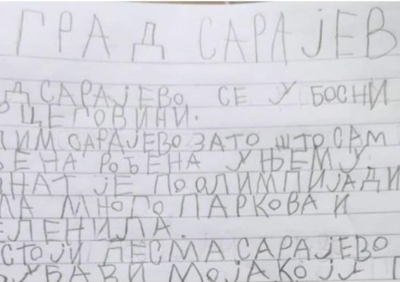 ГРАД САРАЈЕВ
Д САРАЈЕВО СЕ У БОСНИ
ЦЕГОВИНИ.
ИМ САРАЈЕВО ЗАТО ШТО САМ
ЕНА РОЂЕНА У ЊЕМУ
НАТ ЈЕ ПО ОЛИМПИЈАДИ
МНОГО ПАРКОВА И
ЕЛЕНИЛА.
СТОЈИ ПЕСМА САРАЈЕВО
ЉУБАВИ МОЈА КОЈУ